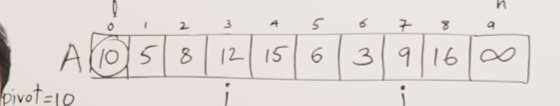 l h
0 1 2 3 4 5 6 7 8 9
A 10 5 8 12 15 6 3 9 16 ∞
pivot=10 i j